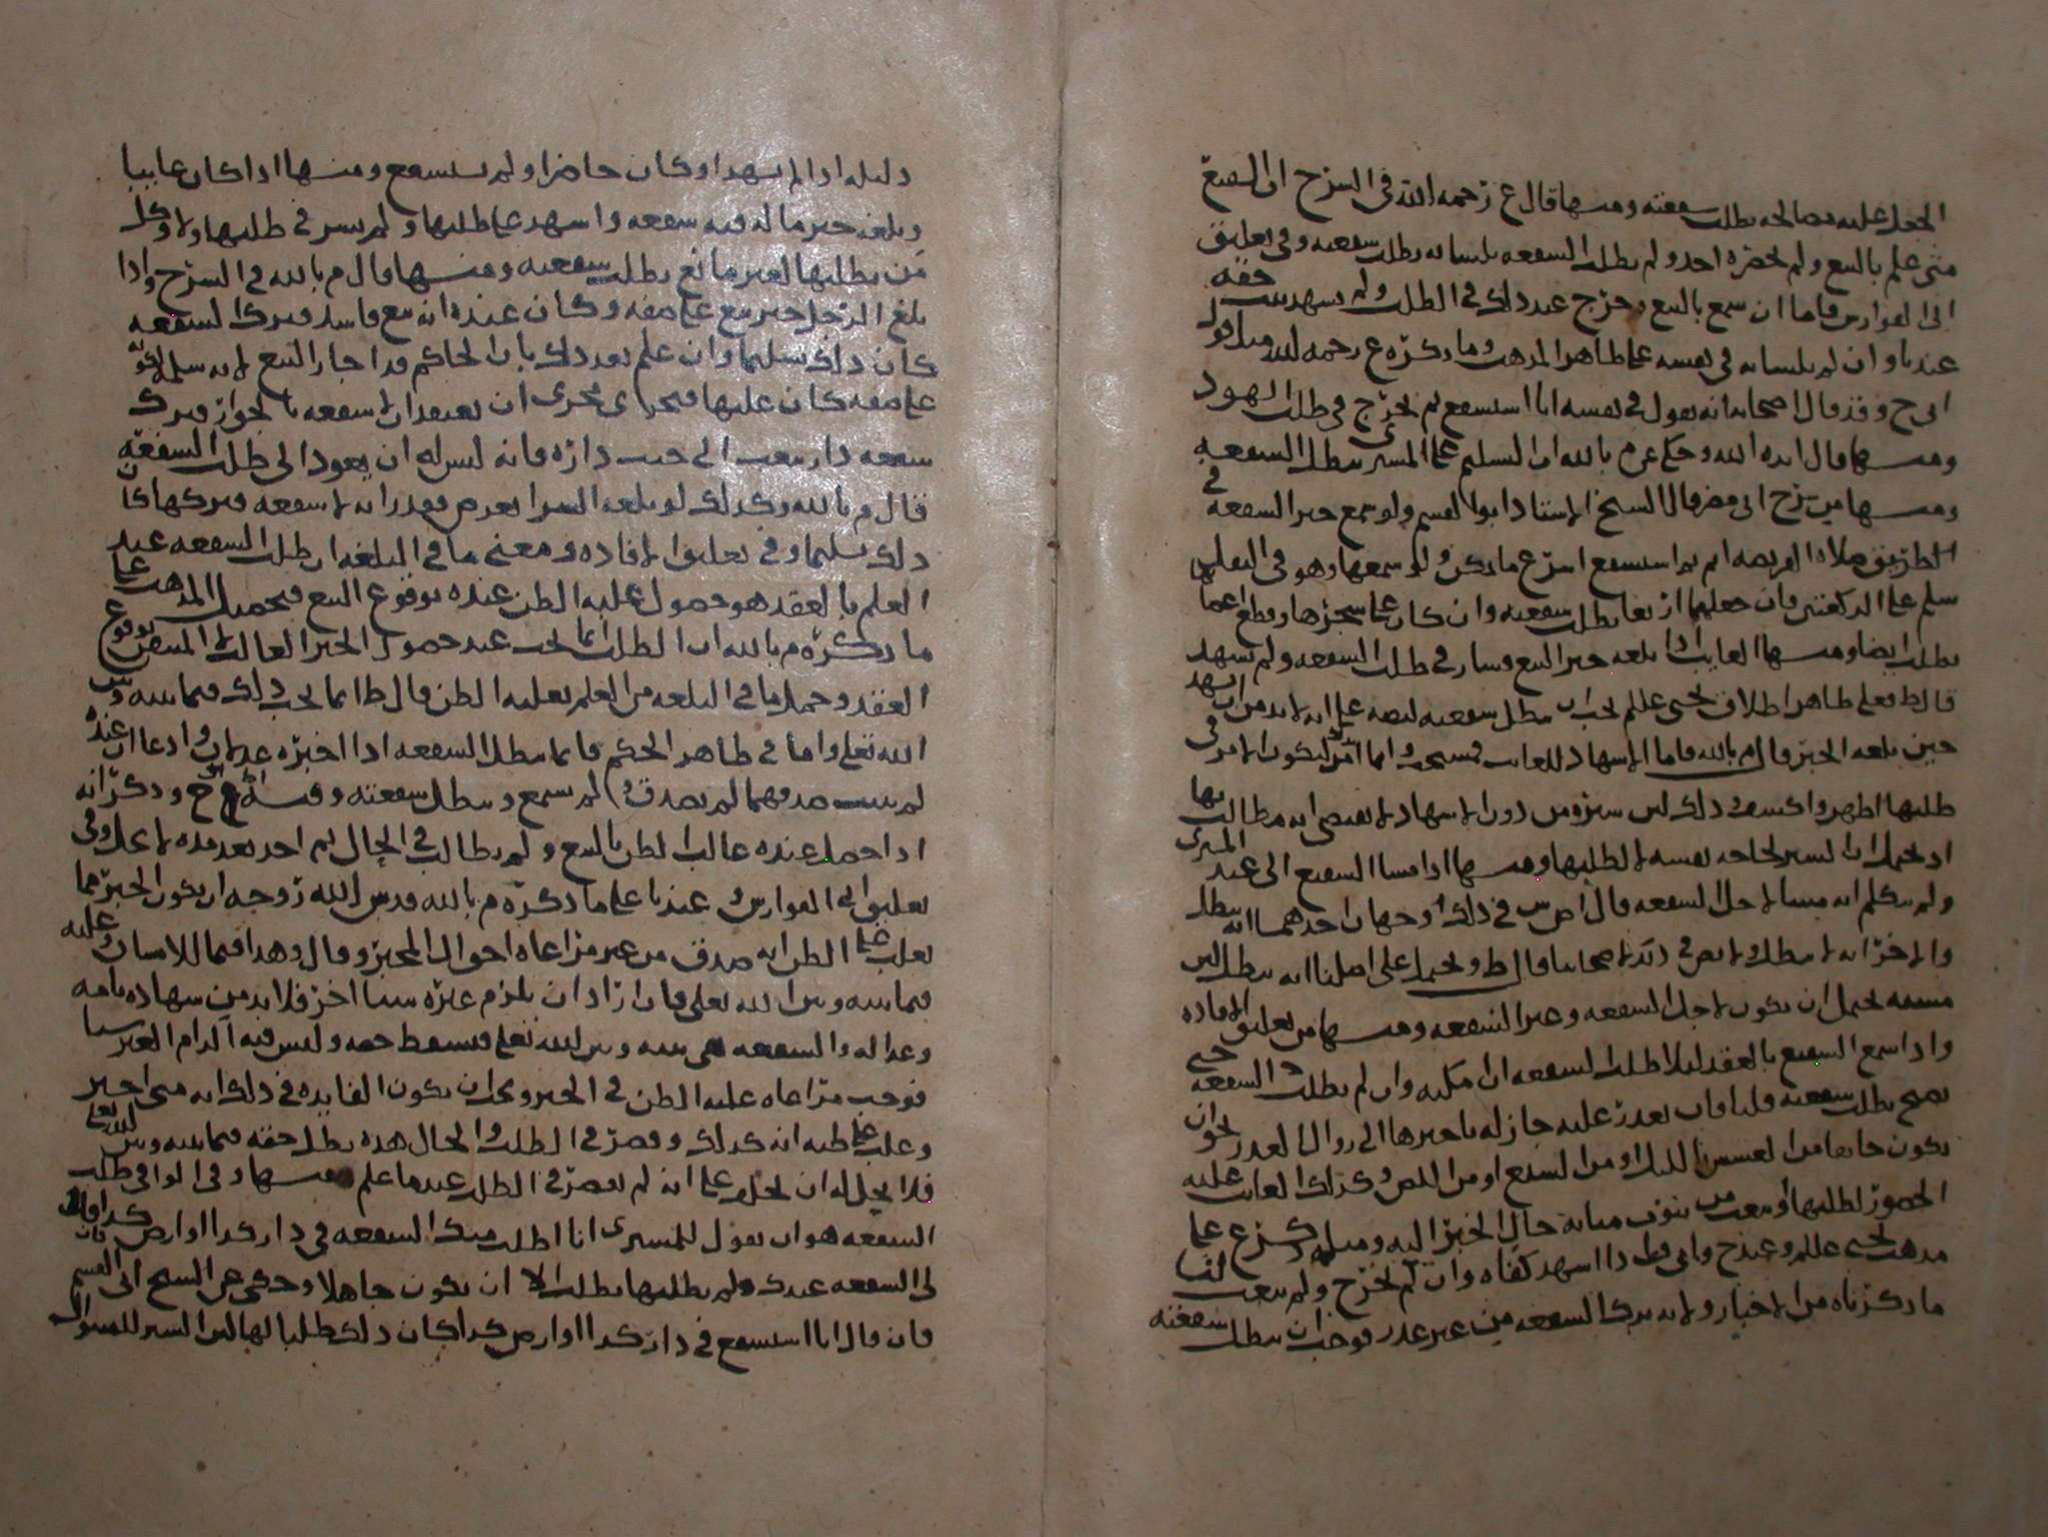 الجعل عليه مصالحه بطلت سفعته ومنها قال ع رحمه الله في السرح ان الشفيع
متى علم بالبيع ولم يحضره احد ولم يطلب السفعه بلسانه بطلت سفعته وفي تعليق
ابي الفوارس فاما ان سمع بالبيع وخرج عند ذلك في الطلب ولم يشهد ثبت حقه
عندنا وان لم بلسانه في نفسه على ظاهر المذهب وما ذكره ع رحمه الله مثل قول
ابي ح وقد قال اصحابه انه يقول في نفسه انا استشفع ثم يخرج في طلب الشهود
ومنها قال ايده الله وحكى عن م بالله ان التسليم على المشتري يبطل الشفعه
ومنها من شرح ابي مضر قال الشيخ الاستاذ ابو القسم ولو سمع خبر الشفعه في
الطريق صلاه الفريضه اتم ثم استشفع اسرع ما يمكن ولو سمعها وهو في النفل
سلم على الركعتين فان جعلهما اربعا بطلت شفعته وان كان على عجزها وقطع
بطلت ايضا ومنها الغايب اذا بلغه خبر البيع فسار في طلب الشفعه ولم يشهد
قال ط فعلى ظاهر اطلاق يحيى عللم يجب ان تبطل شفعته لنصه على انه لا بد من ان يشهد
حين بلغه الخبر قال م بالله فاما الاشهاد للغايب فمستحب وانما امر ليكون الامر في
طلبها اظهر واكشف وذلك ليس سيره من دون الاشهاد لا يقتضي انه مطالب بها
اذ يحتمل ان السير لحاجه نفسه لا لطلبها ومنها اذا مشا الشفيع الى عند المشتري
ولم يتكلم انه مشا لاجل الشفعه قال اص ش في ذلك وجهان احدهما انه يبطل
والاخر انه لا يبطل ولا نص في ذلك لاصحابنا قال ط ويحتمل على اصلنا انه يبطل لان
مشيه يحتمل ان يكون لاجل الشفعه وغير الشفعه ومنها من تعليق الافاده
واذا سمع الشفيع بالعقد ليلا طلب الشفعه ان امكنه وان لم يطلب الشفعه حتى
يصبح بطلت شفعته فلنا فان تعذر عليه جاز له تاخيرها الى زوال العذر نحو ان
يكون خايفا من العسس بالليل او من السبع او من اللص وكذلك الغايب عليه
الحضور لطلبها او يبعث من ينوب منابه حال الخبر اليه ومثله ذكر ع على
مذهب يحيى عللم وعند ح وابي ف اذا اشهد كفاه وان لم يخرج ولم يبعث لنا
ما ذكرناه من الاخبار ولانه ترك الشفعه من غير عذر فوجب ان تبطل شفعته
دليله اذا لم يشهد او كان حاضرا ولم يستشفع ومنها اذا كان غايبا
وبلغه خبر ما له فيه شفعه واشهد على طلبها ولم يسر في طلبها ولا وكل
من يطلبها لغير مانع بطلت شفعته ومنها قال م بالله في الشرح واذا
بلغ الرجل خبر بيع على صفه وكان عنده انه بيع فاسد فترك الشفعه
كان ذلك تسليما وان علم بعد ذلك بان الحاكم قد اجاز البيع لانه سلم لكونه
على صفه كان عليها فجرى مجرى ان يعتقد ان لا شفعه بالجوار فترك
شفعه دار بيعت الى جنب داره فانه ليس له ان يعود الى طلب الشفعه
قال م بالله وكذلك لو بلغه الشرا بعرض فقدر انه لا شفعه فتركها كان
ذلك تسليما وفي تعليق الافاده ومعنى ما في البلغه ان طلب الشفعه عند
العلم بالعقد هو حصول غلبه الظن عنده بوقوع البيع فتحصيل المذهب على
ما ذكره م بالله ان الطلب انما يجب عند حصول الخبر الغالب لا المتيقن بوقوع
العقد وحمل ما في البلغه من العلم بغلبه الظن قال ط انما يجب ذلك فيما بينه وبين
الله تعلى واما في ظاهر الحكم فانما تبطل الشفعه اذا اخبره عدلان وادعا ان عنده
لم يثبت صدقهما لم يصدق ولم يسمع وتبطل شفعته وذكر انه
اذا حصل عنده غالب الظن بالبيع ولم يطالب في الحال ثم احد بعد مده لا تحل وفي
تعليق ابي الفوارس وعندنا على ما ذكره م بالله قدس الله روحه ان يكون الخبر مما
يغلب على الظن انه صدق من غير مراعاه احوال المخبر وقال وهذا فيما للانسان عليه
فيما بينه وبين الله تعلى فان اراد ان يلزم غيره شيا اخر فلا بد من شهاده تامه
وعداله والشفعه هي بينه وبين الله تعلى فيسقط حقه وليس فيه الزام الغير شيا
فوجب مراعاه غلبه الظن في الخبر ويجب ان يكون الفايده في ذلك انه متى اخبر
وغلب على ظنه انه كذلك وقصر في الطلب والحال هذه بطل حقه فيما بينه وبين الله تعا
فلا يحل له ان يحلف على انه لم يقصر في الطلب عندما علم ومنها وفي الوافي طلب
الشفعه هو ان يقول للمشتري انا اطلب منك الشفعه في دار كذا او ارض كذا فان قال
لي الشفعه عندك ولم يطلبها بطلت الا ان يكون جاهلا وحكي عن الشيخ ابي القسم
فان قال انا استشفع في دار كذا او ارض كذا كان ذلك طلبا لها